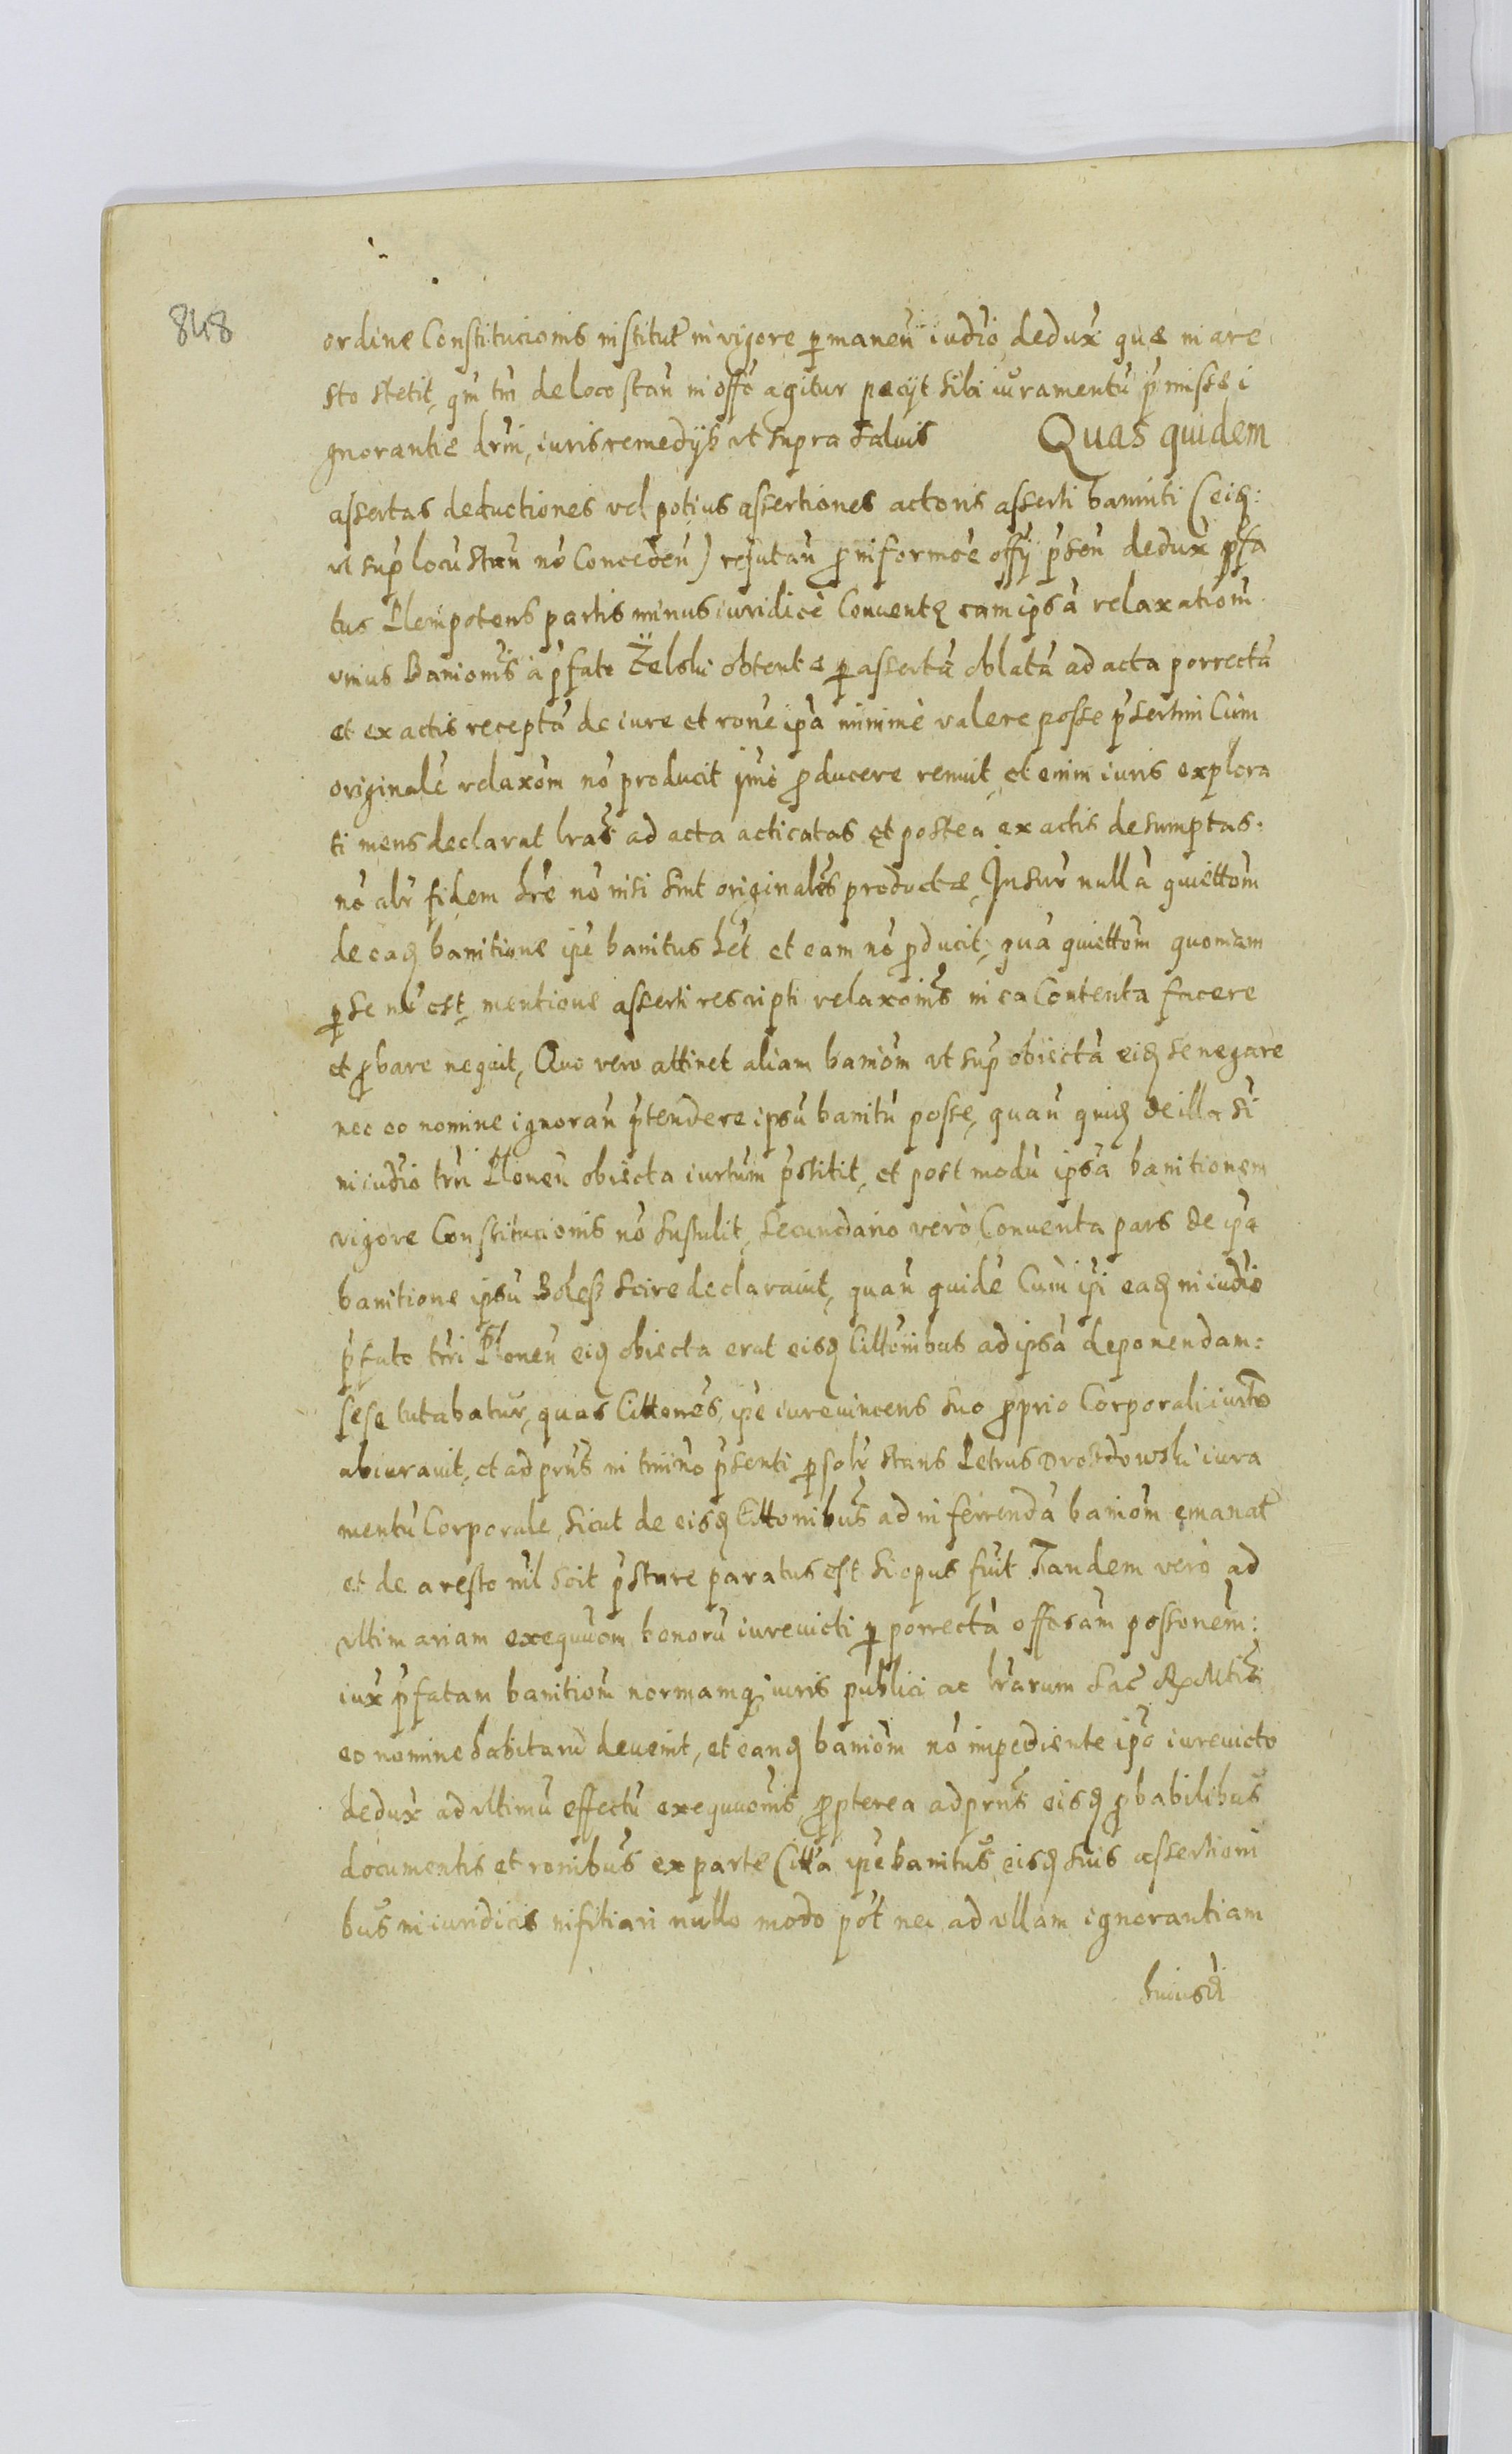 848
ordine Constitucionis institut in vigore ꝑmaneñ iudio dedux̃ quæ in are
sto stetit, qm̃ tm̃ de loco stan̄ in offõ agitur pecyt sibi iuramentũ p̃missæ i
gnorantiæ drm̃, iuris remedijs vt supra saluis Quas quidem
assertas deductiones vel potius assertiones actoris asserti banniti (eiꝗ:
vt sup̃ locũ stan̄ nõ Concedeñ) refutan̄ ꝓ informõe offÿ p̃señ dedux̃ p̃fa
tus Plenipotens partis minus iuridicè Conuentę eam ipsã relaxatiom̃
vnius Baniom̃s à p̃fato Żelski obtentæ ꝑ assertã oblatã ad acta porrectã
et ex actis receptã de iure et rone ipã minimè valere posse p̃sertim Cùm
originalẽ relaxom̃ nõ producit imò ꝓducere renuit, et enim iuris explora
ti mens declarat lrãs ad acta acticatas et postea ex actis desumptas:
nõ alr̃ fidem hrẽ nõ nisi sint originales productæ, Insur̃ nullã quiettom̃
de eaꝗ banitione ipẽ banitus hẽt et eam nõ ꝓducit, quã quiettom̃ quoniam
ꝑ se nõ est, mentione asserti rescripti relaxoinĩs in ea Contenta facere
et ꝓbare nequit, Quo vero attinet aliam baniom̃ vt sup̃ obiectã eiꝗ se negare
nec eo nomine ignoran̄ p̃tendere ipsũ banitũ posse, quan̄ quiꝗ de illa si
in iudio trñ Ploneñ obiecta iurtum̃ p̃stitit, et post modũ ipsã banitionem
vigore Constitucionis nõ sustulit, secundario verò Conuenta pars de ipã
banitione ipsũ Boless scire declarauit, quan̄ quidẽ Cùm ipi eaꝗ in iudio
p̃fato trri Ploneñ eiꝗ obiecta erat eisꝗ Cittonibus ad ipsã deponendam:
sese tutabatur, quas Cittones, ipẽ iureuincens suo ꝓprio Corporali iurto
abiurauit, et ad prns̃ in trmino p̃senti ꝑsolr̃ stans Petrus Drozdowski iura
mentũ Corporale, sicut de eisꝗ Cittonibus ad inferrendã baniom̃ emanat
et de aresto nil scit p̃stare paratus est si opus fuit Tandem verò ad
vltimariam exequuom bonorũ iureuicti ꝑ porrectã offosam possonem̃:
iux̃ p̃fatam banitiom̃ normamqꝫ iuris publici ac lrãrum Sac̃ Rx Mtis̃
eo nomine habitarũ deuenit, et eanꝗ baniom̃ nõ impediente ipõ iureuicto
dedux̃ ad vltimũ effectũ exequuonis, ꝓpterea ad prns̃ eisꝗ ꝓbabilibus
documentis et ronibus ex parte Cittã ipẽ banitus, eisꝗ suis assertioni
bus in iuridicis inficiari nullo modo põt nec ad vllam ignorantiam
huiusꝗ